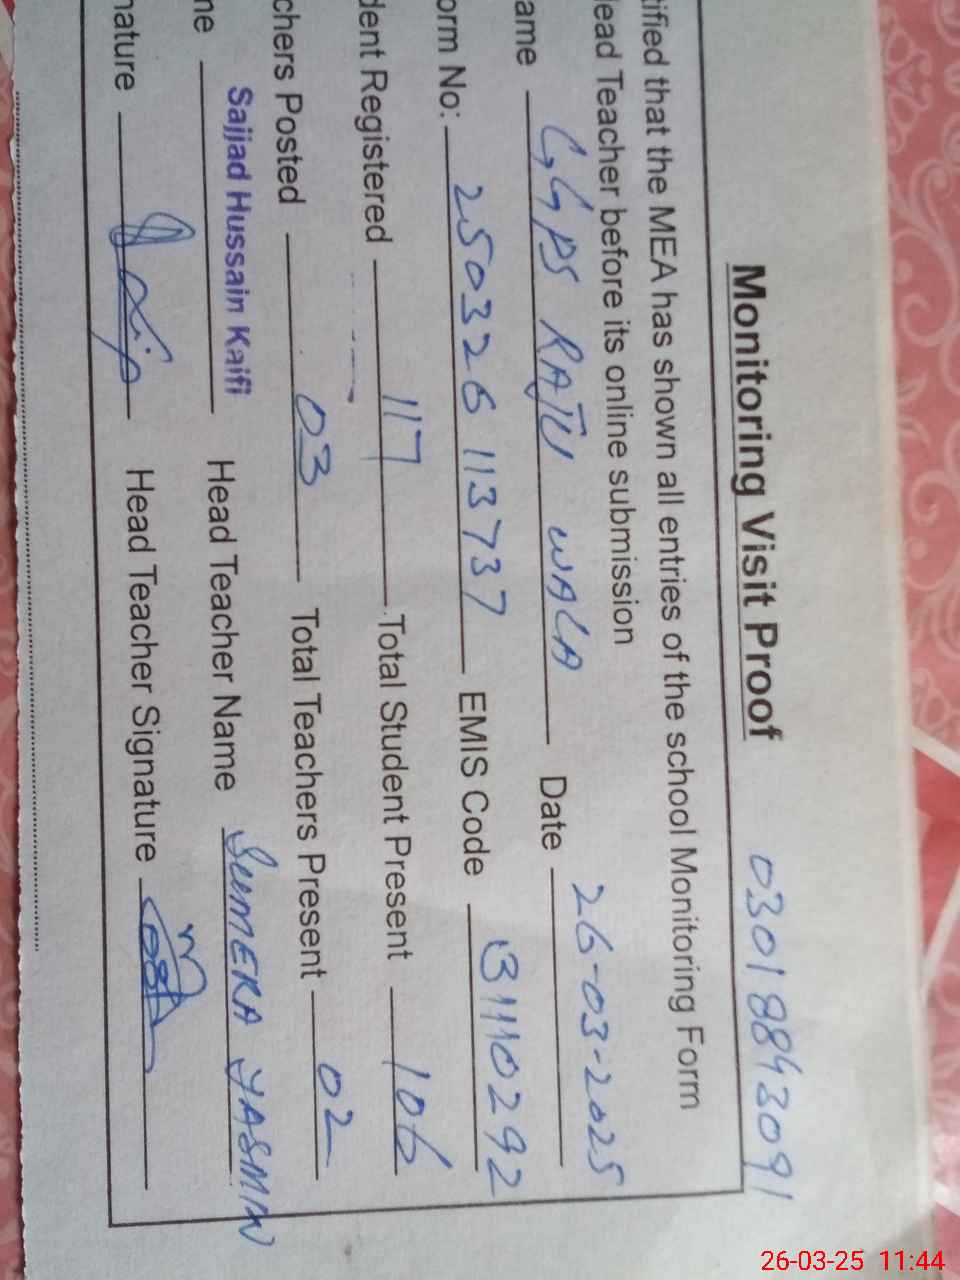 Monitoring Visit Proof 03018843091
tified that the MEA has shown all entries of the school Monitoring Form
lead Teacher before its online submission
ame GGPS RAJU WALA Date 26-03-2025
orm No: 250326113737 EMIS Code 31110292
dent Registered 117 Total Student Present 106
chers Posted 03 Total Teachers Present 02
ne Sajjad Hussain Kaifi Head Teacher Name SUMERA YASMIN
nature Head Teacher Signature
26-03-25 11:44